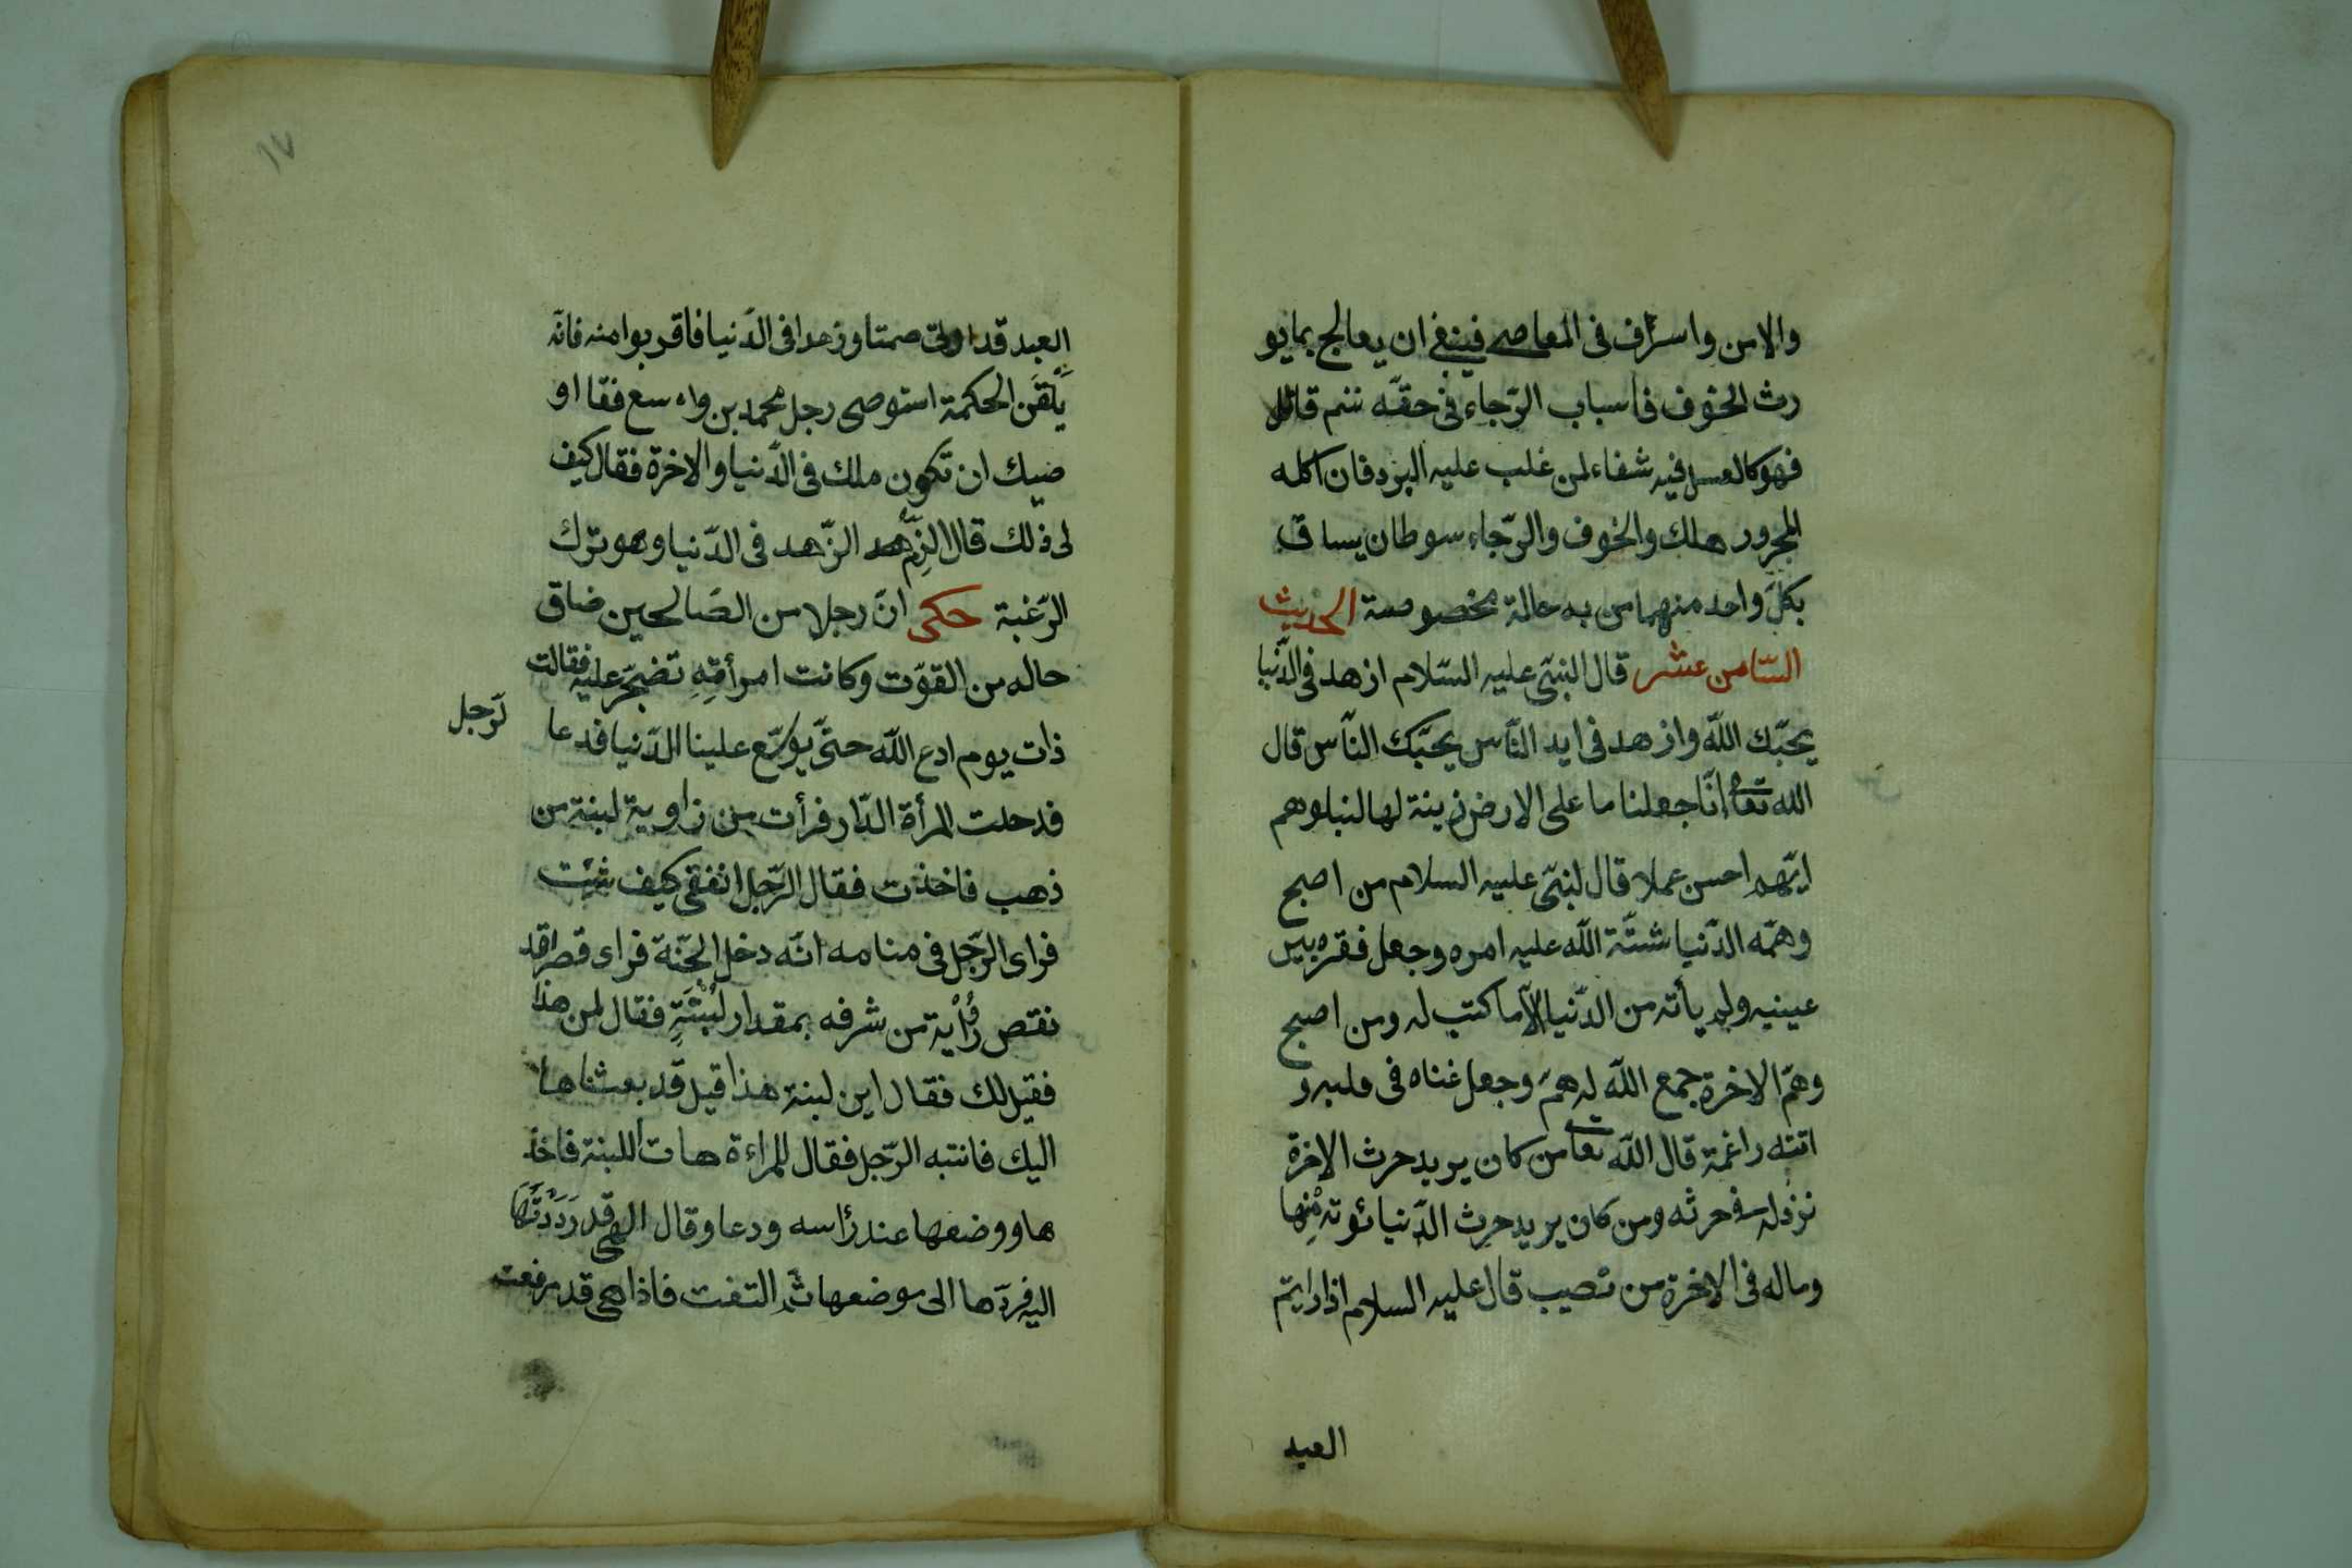 والامن واسراف فى المعاصى فينبغى ان يعالج بما يو
رث الخوف فاسباب الرّجاء فى حقّه سم قاتل
فهو كالعسل فيه شفاء لمن غلب عليه البرد فان اكله
المحرور هلك والخوف والرّجاء سوطان يساق
بكلّ واحد منهما من به حالة مخصوصة الحديث
السّامن عشر قال النبىّ عليه السّلام ازهد فى الدّنيا
يحبّك اللّه وازهد فى ايد النّاس يحبّك النّاس قال
الله تعا انّا جعلنا ما على الارض زينة لها لنبلوهم
ايّهم احسن عملا قال لنبىّ عليه السلام من اصبح
وهمّه الدّنيا شتّة اللّه عليه امره وجعل فقره بين
عينيه ولم يأته من الدّنيا الّا ما كتب له ومن اصبح
وهمّ الاخرة جمع اللّه له همّ وجعل غناه فى قلبه و
اتته راغمة قال اللّه تعا من كان يريد حرث الاخرة
نزد له فى حرثه ومن كان يريد حرث الدّنيا نؤته مِنْها
وماله فى الاخرة من نصيب قال عليه السلام اذا رايتم
العبد
١٧
العبد قد اوتى صمتا وزهدا فى الدّنيا فاقربوا منه فانّه
يُلَقَّن الحكمة استوصى رجل محمد بن واسع فقا او
صيك ان تكون ملك فى الدّنيا والاخرة فقال كيف
لى ذلك قال الزم الزّهد فى الدّنيا وهو ترك
الرّغبة حكى انّ رجلا من الصّالحين ضاق
حاله من القوّت وكانت امرأتِهِ تضجّر عليه فقالت
ذات يوم ادع اللّه حتّى يوسّع علينا الدّنيا فدعا
لرّجل
فدحلت المرأة الدّار فرأت من زاوية لبنة من
ذهب فاخذت فقال الرّجل انفقى كيف شئت
فراى الرّجل فى منامه انّه دخل الجنّة فراى قصرا قد
نقتص من شرفه بمقدار لَبِنَةٍ فقال لمن هذا
فقيل لك فقال اين لبنة هذا قيل قد بعثناها
اليك فانتبه الرّجل فقال للمراءة هات اللبنة فاخذ
ها ووضعها عند رأسه ودعا وقال الهى قد رَدَدْتُها
اليه فردّها الى موضعها ثم التفت فاذا هى قد رفعت